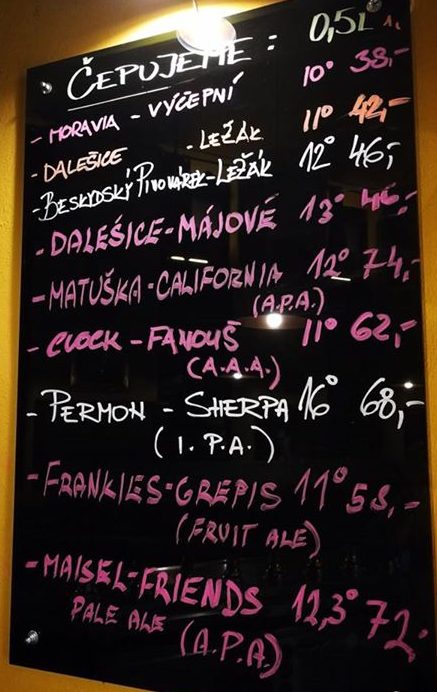 ČEPUJEME: 0,5L
- MORAVIA - VÝČEPNÍ 10° 38,-
- DALEŠICE - LEŽÁK 11° 42,-
- BESKYDSKÝ PIVOVÁREK - LEŽÁK 12° 46,-
- DALEŠICE - MÁJOVÉ 13° 46,-
- MATUŠKA - CALIFORNIA 12° 74,-
(A.P.A.)
- CLOCK - FANOUŠ 11° 62,-
(A.A.A.)
- PERMON - SHERPA 16° 68,-
(I.P.A.)
- FRANKIES - GREPIS 11° 58,-
(FRUIT ALE)
- MAISEL - FRIENDS 12,3° 72,-
PALE ALE (A.P.A.)